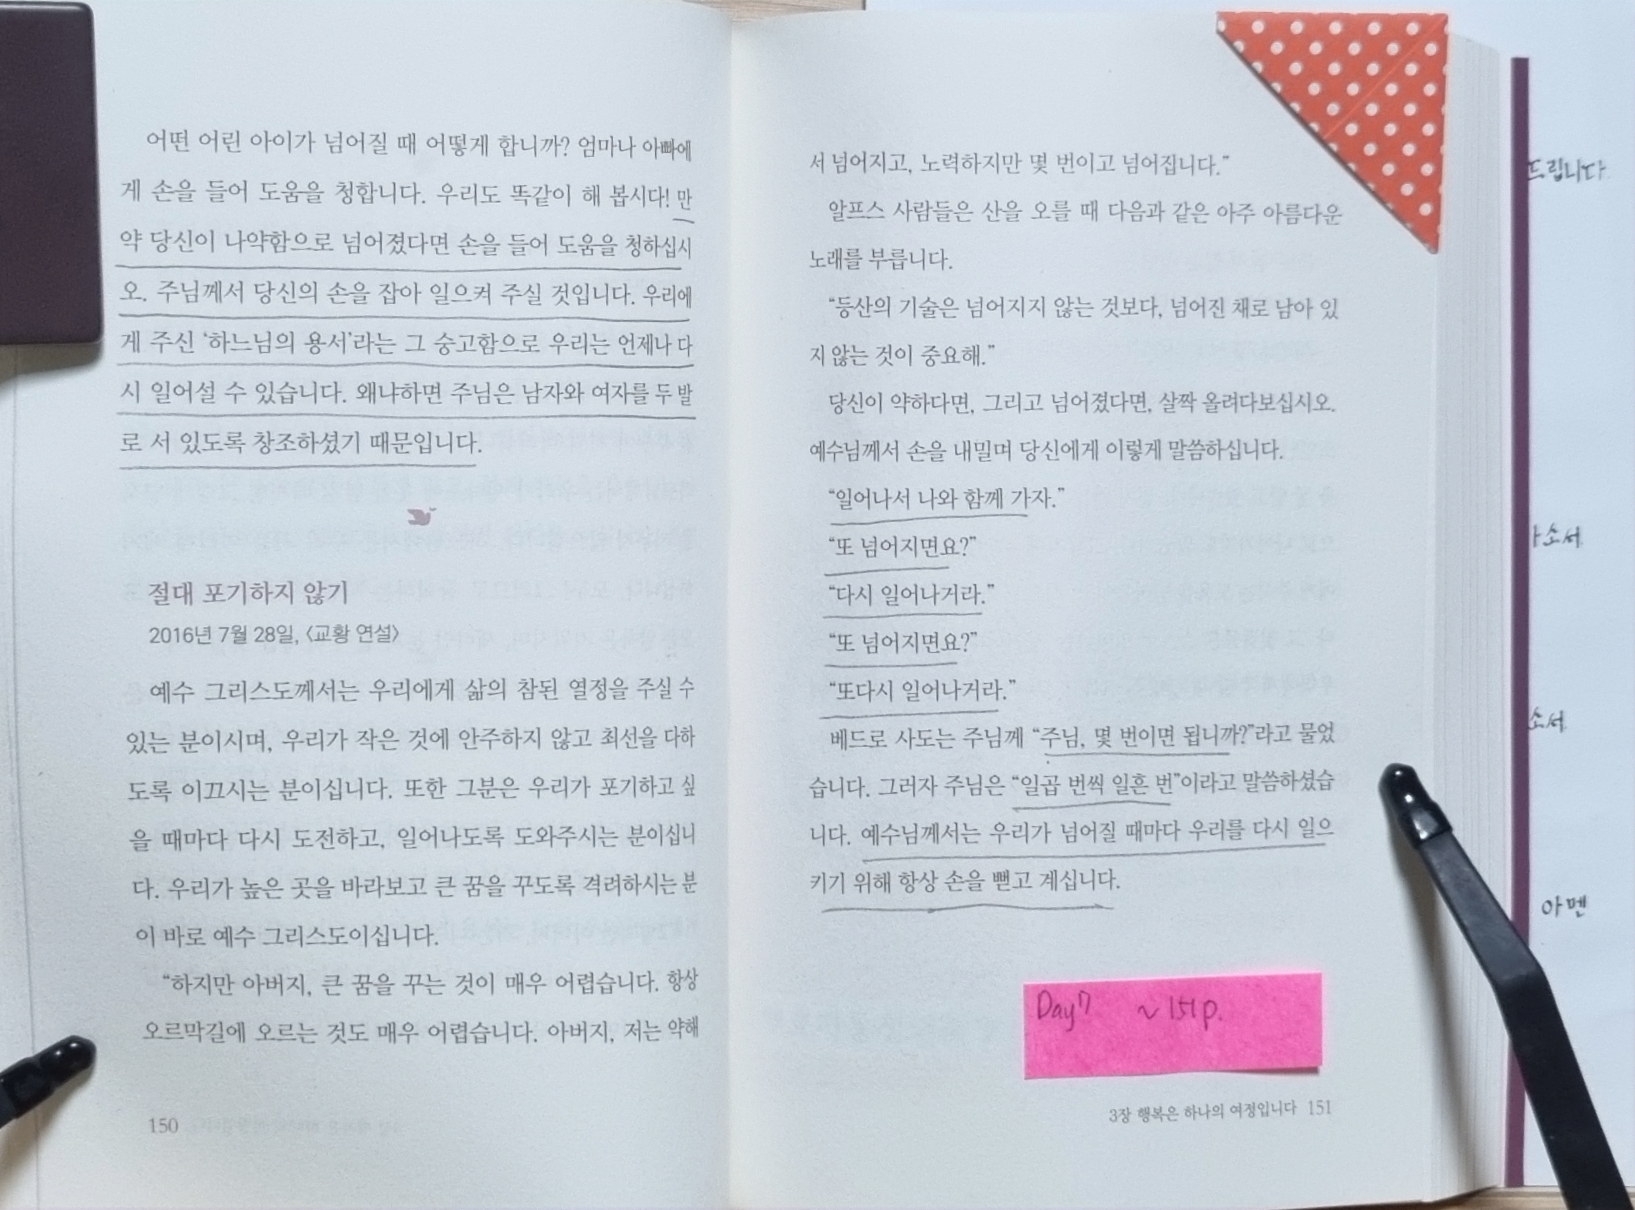 어떤 어린 아이가 넘어질 때 어떻게 합니까? 엄마나 아빠에
게 손을 들어 도움을 청합니다. 우리도 똑같이 해 봅시다! 만
약 당신이 나약함으로 넘어졌다면 손을 들어 도움을 청하십시
오. 주님께서 당신의 손을 잡아 일으켜 주실 것입니다. 우리에
게 주신 ‘하느님의 용서’라는 그 숭고함으로 우리는 언제나 다
시 일어설 수 있습니다. 왜냐하면 주님은 남자와 여자를 두 발
로 서 있도록 창조하셨기 때문입니다.
절대 포기하지 않기
2016년 7월 28일, 〈교황 연설〉
예수 그리스도께서는 우리에게 삶의 참된 열정을 주실 수
있는 분이시며, 우리가 작은 것에 안주하지 않고 최선을 다하
도록 이끄시는 분이십니다. 또한 그분은 우리가 포기하고 싶
을 때마다 다시 도전하고, 일어나도록 도와주시는 분이십니
다. 우리가 높은 곳을 바라보고 큰 꿈을 꾸도록 격려하시는 분
이 바로 예수 그리스도이십니다.
“하지만 아버지, 큰 꿈을 꾸는 것이 매우 어렵습니다. 항상
오르막길에 오르는 것도 매우 어렵습니다. 아버지, 저는 약해
150
서 넘어지고, 노력하지만 몇 번이고 넘어집니다.”
알프스 사람들은 산을 오를 때 다음과 같은 아주 아름다운
노래를 부릅니다.
“등산의 기술은 넘어지지 않는 것보다, 넘어진 채로 남아 있
지 않는 것이 중요해.”
당신이 약하다면, 그리고 넘어졌다면, 살짝 올려다보십시오.
예수님께서 손을 내밀며 당신에게 이렇게 말씀하십니다.
“일어나서 나와 함께 가자.”
“또 넘어지면요?”
“다시 일어나거라.”
“또 넘어지면요?”
“또다시 일어나거라.”
베드로 사도는 주님께 “주님, 몇 번이면 됩니까?”라고 물었
습니다. 그러자 주님은 “일곱 번씩 일흔 번”이라고 말씀하셨습
니다. 예수님께서는 우리가 넘어질 때마다 우리를 다시 일으
키기 위해 항상 손을 뻗고 계십니다.
Day7 ~151p.
3장 행복은 하나의 여정입니다 151
드립니다.
소서
소서
아멘